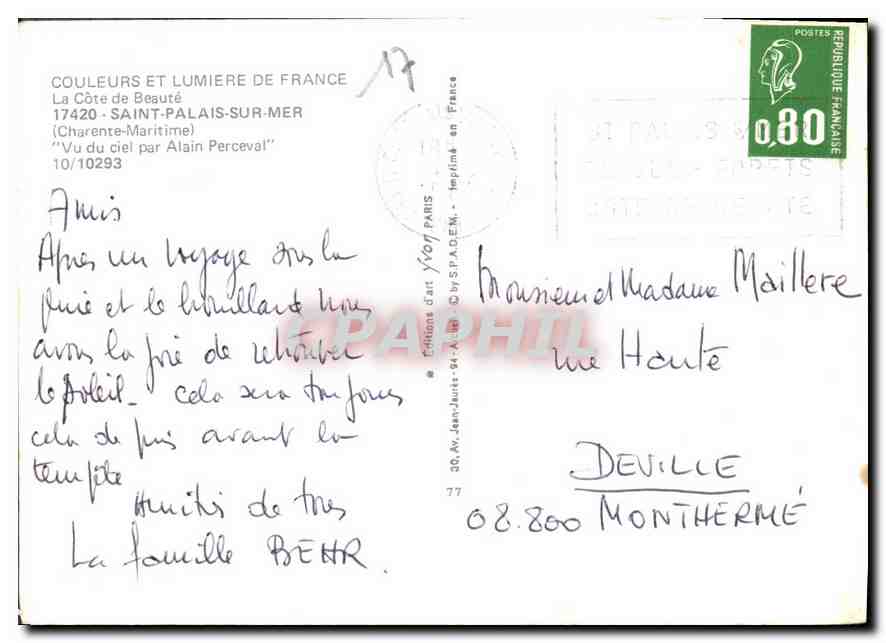 COULEURS ET LUMIERE DE FRANCE
La Côte de Beauté
17420 - SAINT-PALAIS-SUR-MER
(Charente-Maritime)
"Vu du ciel par Alain Perceval"
10/10293
17
Amis
Apres un voyage sous la
pluie et le brouillard nous
avons la joie de retrouver
le soleil - cela sera toujours
cela de pris avant la
tempête
Amitiés de tous
La famille BEHR.
77
30, Av. Jean-Jaurès - 94 - Arcueil - © by S.P.A.D.E.M. - Imprimé en France
Editions d'art Yvon PARIS
POSTES
REPUBLIQUE FRANÇAISE
0,80
ST PALAIS S/MER
Monsieur et Madame Maillere
rue Haute
DEVILLE
08.800 MONTHERMÉ
CPAPHIL